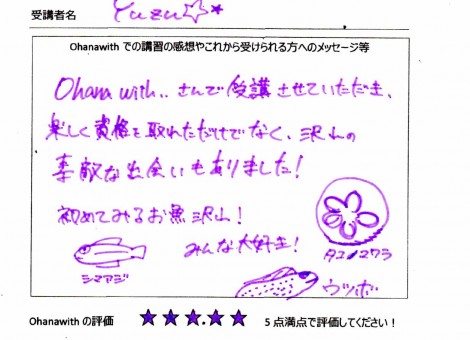 受講者名 Yuzu☆*
Ohanawith での講習の感想やこれから受けられる方へのメッセージ等
Ohana with.. さんで受講させていただき、
楽しく資格を取れただけでなく、沢山の
素敵な出会いもありました!
初めてみるお魚沢山!
みんな大好き!
シマアジ
タコノマクラ
ウツボ
Ohanawith の評価 ★★★.★★ 5 点満点で評価してください!